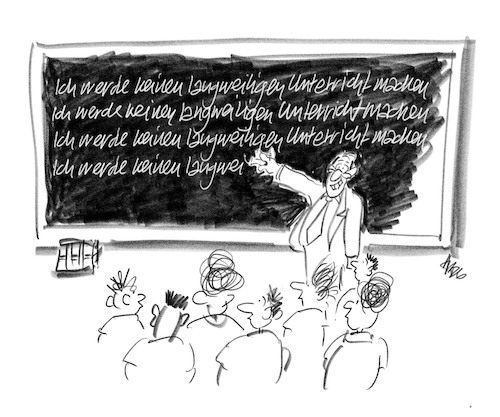 Ich werde keinen langweiligen Unterricht machen
Ich werde keinen langweiligen Unterricht machen
Ich werde keinen langweiligen Unterricht machen
Ich werde keinen langwei